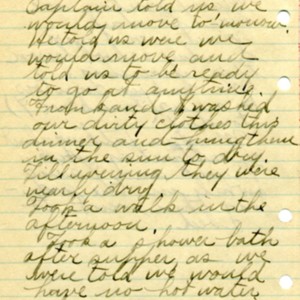 Captain told us we
would move to morrow.
He told us were we
would move and
told us to be ready
to go at anytime.
Frank and I washed
our dirty clothes this
dinner and hung them
in the sun to dry.
Till evening they were
nearly dry.
Took a walk in the
afternoon.
Took a shower bath
after supper as we
were told we would
have no hot water